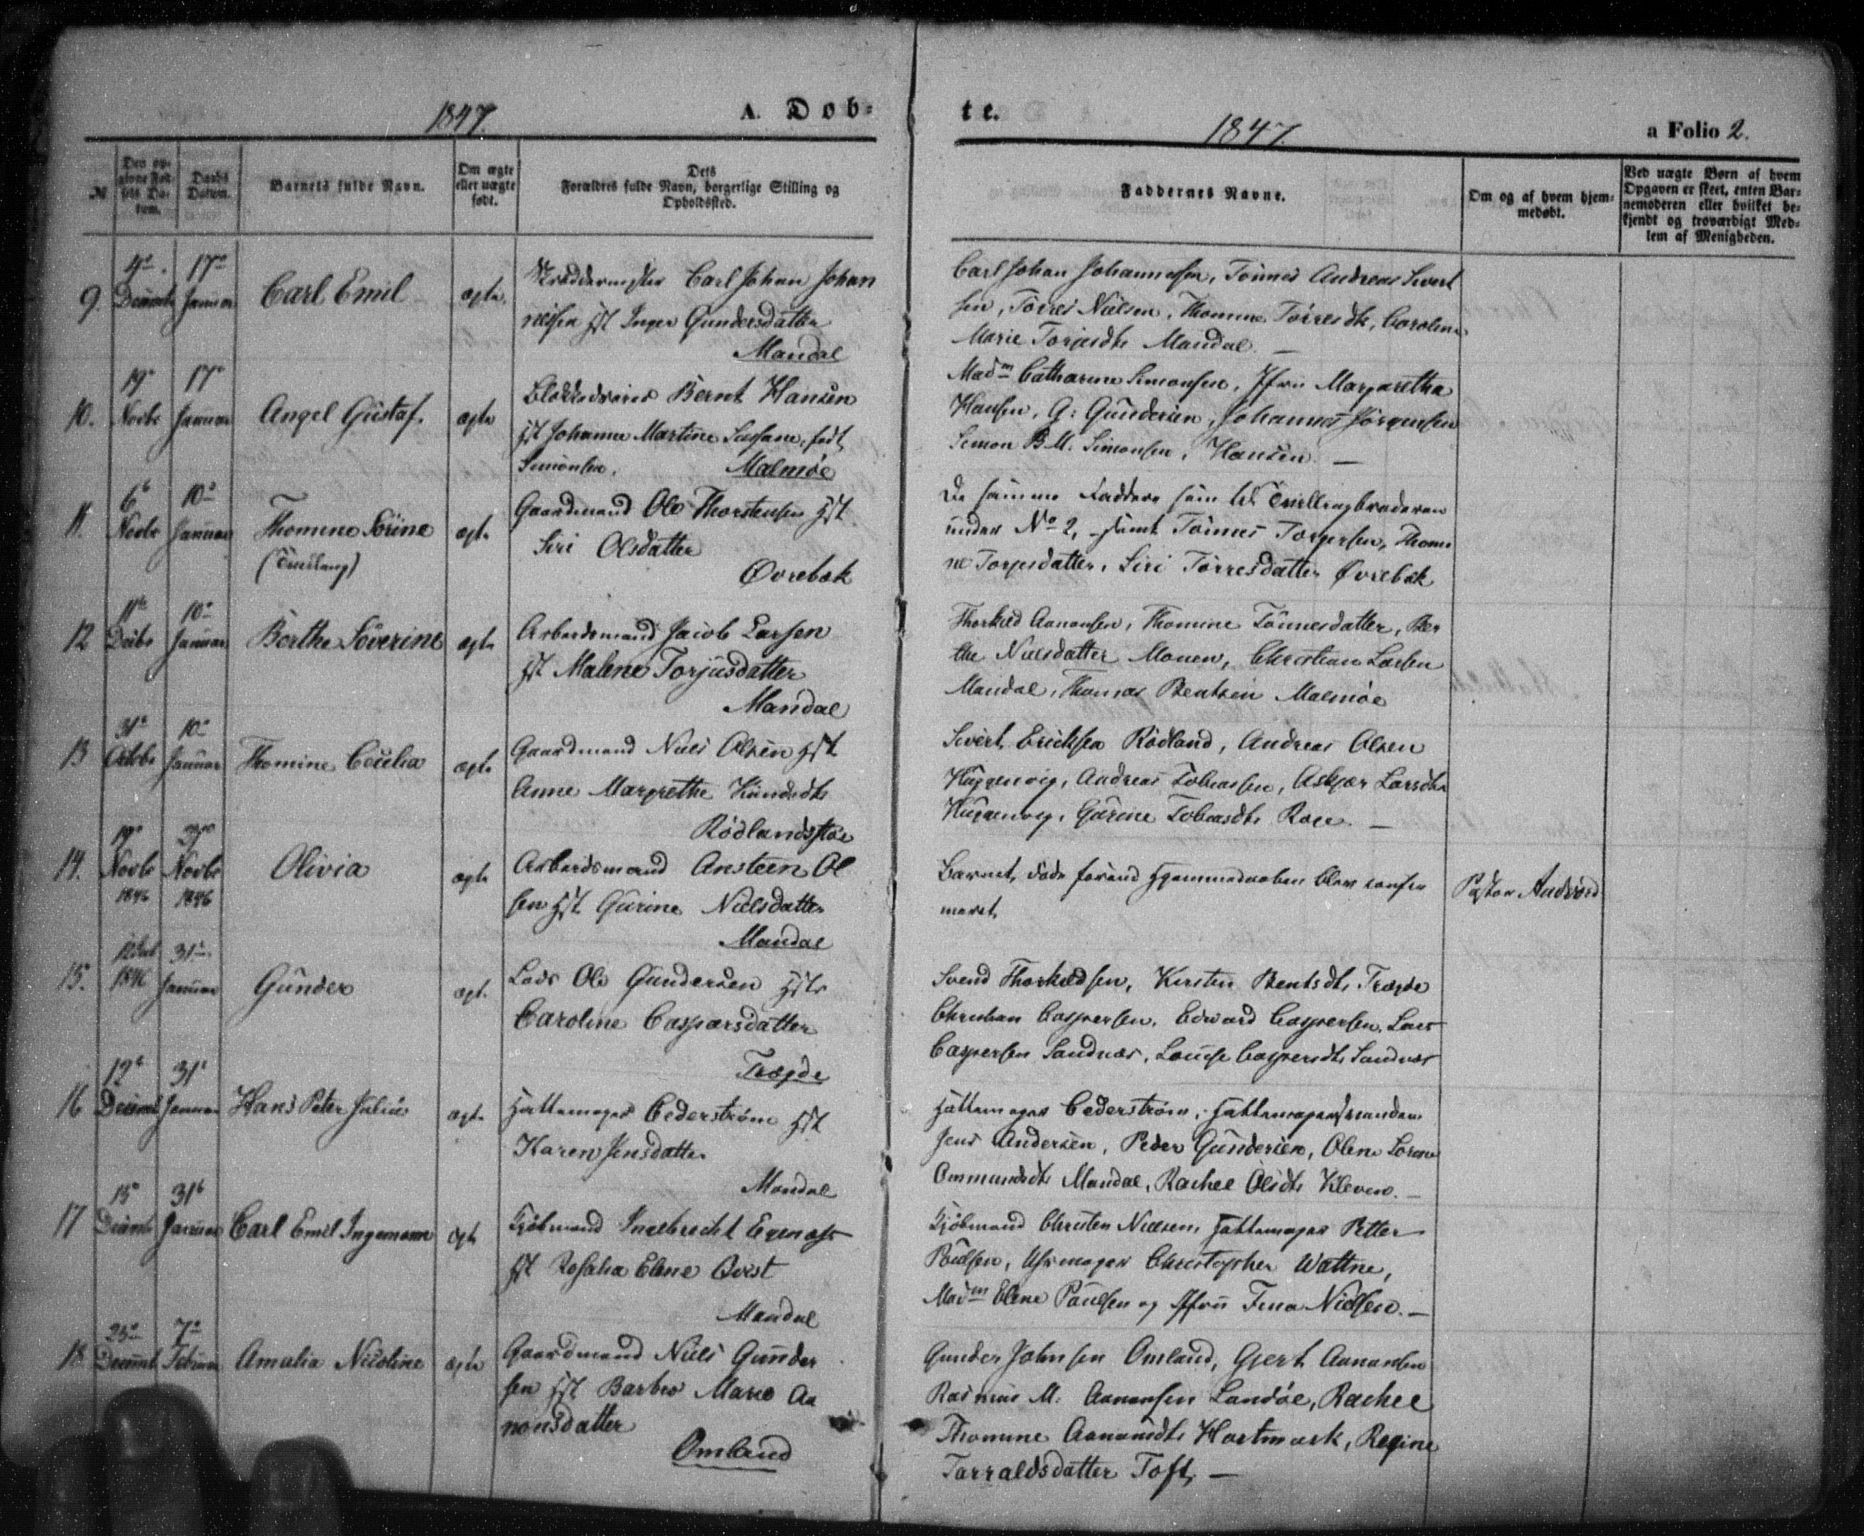 1847.
A. Dob-
te.
1847.
a Folio 2.
№
Den op-
givne Fød-
sels Da-
tum.
Daabs
Datum.
Barnets fulde Navn.
Om ægte
eller uægte
født.
Dets
Forældres fulde Navn, borgerlige Stilling og
Opholdssted.
Faddernes Navne.
Om og af hvem hjem-
medøbt.
Ved uægte Børn af hvem
Opgaven er skeet, enten Bar-
nemoderen eller hvilket be-
kjendt og troværdigt Med-
lem af Menigheden.
9.
17
Januar
Carl Emil
ægte
Skræddermester Carl Johan Johan
nessen Hst Inger Gundersdatter
Mandal
Carl Johan Johannessen, Tønnes Andreas Sivert
sen, Torres Nielsen, Thomine Torresdtr, Caroline
Marie Torjesdtr Mandal. —
10.
19
Novbr
17
Januar
Angel Gustaf.
ægte
Bernt Hansen
Hst Johanne Martine Sussane, født
Simonsen.
Malmøe
Madm Catharine Simonsen, Jfru Margaretha
Hansen, G. Gundersen, Johannes Jørgensen
Simon B. M. Simonsen, Hansen. —
11.
6
Novbr
10
Januar
Thomine Sørine
(Tvilling)
ægte
Gaardmand Ole Thorstensen Hst
Siri Olsdatter
Øvrebæk
De samme Faddere som til Tvillingbroderen
under No 2, samt Tønnes Torgersen, Thomi
ne Torjesdatter, Siri Torresdatter Øvrebæk
12
11
Decbr
10
Januar
Berthe Severine
ægte
Arbeidsmand Jacob Larsen
Hst Malene Torjusdatter
Mandal
Thorkild Aanonsen, Thomine Tønnesdatter, Ber
the Nielsdatter Monen, Christian Larsen
Mandal, Thomas Bentsen Malmøe
13
31
Octbr
10
Januar
Thomine Cecilia
ægte
Gaardmand Niels Olsen Hst
Anne Margrethe
Rødland
Sivert Ericksen Rødland, Andreas Olsen
Andreas Tobiassen, Larsdtr
Gurine Tobiasdtr —
14.
19
Novbr
1846
Novbr
1846
Olivia
ægte
Arbeidsmand Ansteen Ol
sen Hst Gurine Nielsdatter
Mandal
Barnet døde forend Hjemmedaaben blev confir
meret
Pastor
15.
12
1846
31
Januar
Gunder
ægt.
Lods Ole Gundersen Hstr
Caroline Caspersdatter
Trægde
Svend Thorkildsen, Kirsten Bentsdtr Trægde
Christian Caspersen, Edward Caspersen, Lars
Caspersen Sandnæs, Louise Caspersdtr Sandnæs
16
12
31
Januar
Hans Peter Julius
ægte
Hattemager Cederstrøm Hst
Karen Jensdatter
Mandal
Hattemager Cederstrøm, Hattemagersvenden
Jens Andersen, Peder Gundersen, Olene
Ommundsdtr Mandal, Rachel Olsdtr Kleven. —
17
15
31
Januar
Carl Emil Ingemann
ægte
Kjøbmand Ingebrecht
Hst Rosalia Elene Qvist
Mandal
Kjøbmand Christen Nielsen, Hattemager Petter
Poulsen, Uhrmager Christopher Wattne,
Madm Elene Paulsen og Jfru Nielsen. —
18
25
7
Februar
Amalia Nicoline
ægte
Gaardmand Niels Gunder
sen Hst Barbro Marie Aa
nonsdatter
Omland
Gunder Johnsen Omland, Gjert Aanonsen
Rasmus M. Aanonsen Landøe, Rachel
Thomine Aanonsdtr Hartmark, Regine
Tarraldsdatter Toft, —